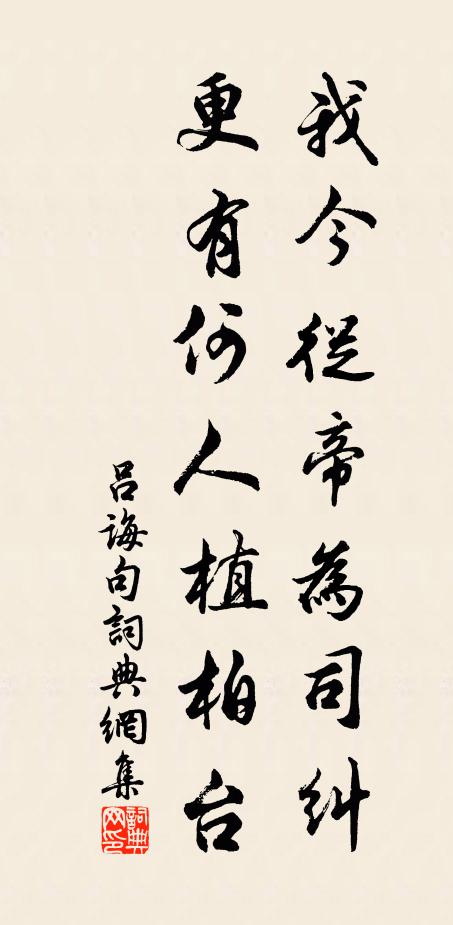 我今從帝為司糾
更有何人植柏台
吕誨句詞典網集
詞典網印